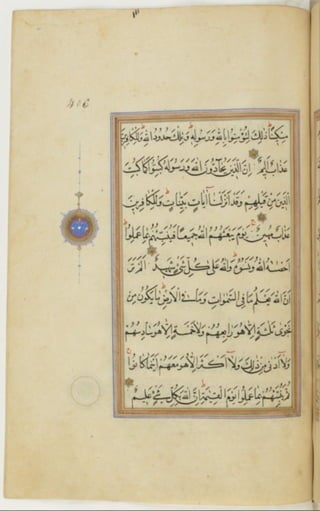 مِسْكِينًا ذَٰلِكَ لِتُؤْمِنُوا بِاللَّهِ وَرَسُولِهِ وَتِلْكَ حُدُودُ اللَّهِ وَلِلْكَافِرِينَ
عَذَابٌ أَلِيمٌ إِنَّ الَّذِينَ يُحَادُّونَ اللَّهَ وَرَسُولَهُ كُبِتُوا كَمَا كُبِتَ
الَّذِينَ مِنْ قَبْلِهِمْ وَقَدْ أَنْزَلْنَا آيَاتٍ بَيِّنَاتٍ وَلِلْكَافِرِينَ
عَذَابٌ مُهِينٌ يَوْمَ يَبْعَثُهُمُ اللَّهُ جَمِيعًا فَيُنَبِّئُهُمْ بِمَا عَمِلُوا
أَحْصَاهُ اللَّهُ وَنَسُوهُ وَاللَّهُ عَلَىٰ كُلِّ شَيْءٍ شَهِيدٌ أَلَمْ تَرَ
أَنَّ اللَّهَ يَعْلَمُ مَا فِي السَّمَوَاتِ وَمَا فِي الْأَرْضِ مَا يَكُونُ مِنْ
نَجْوَىٰ ثَلَاثَةٍ إِلَّا هُوَ رَابِعُهُمْ وَلَا خَمْسَةٍ إِلَّا هُوَ سَادِسُهُمْ
وَلَا أَدْنَىٰ مِنْ ذَٰلِكَ وَلَا أَكْثَرَ إِلَّا هُوَ مَعَهُمْ أَيْنَمَا كَانُوا
ثُمَّ يُنَبِّئُهُمْ بِمَا عَمِلُوا يَوْمَ الْقِيَامَةِ إِنَّ اللَّهَ بِكُلِّ شَيْءٍ عَلِيمٌ